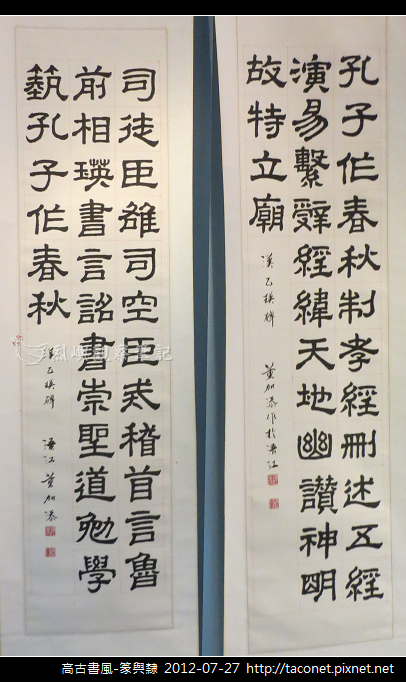 孔子作春秋制孝經刪述五經
演易繫辭經緯天地幽讚神明
故特立廟
漢乙瑛碑
董加添作於浯江
司徒臣雄司空臣戒稽首言魯
前相瑛書言詔書崇聖道勉學
蓺孔子作春秋
漢乙瑛碑
浯江 董加添
烈嶼觀察筆記
高古書風-篆與隸 2012-07-27 http://taconet.pixnet.net